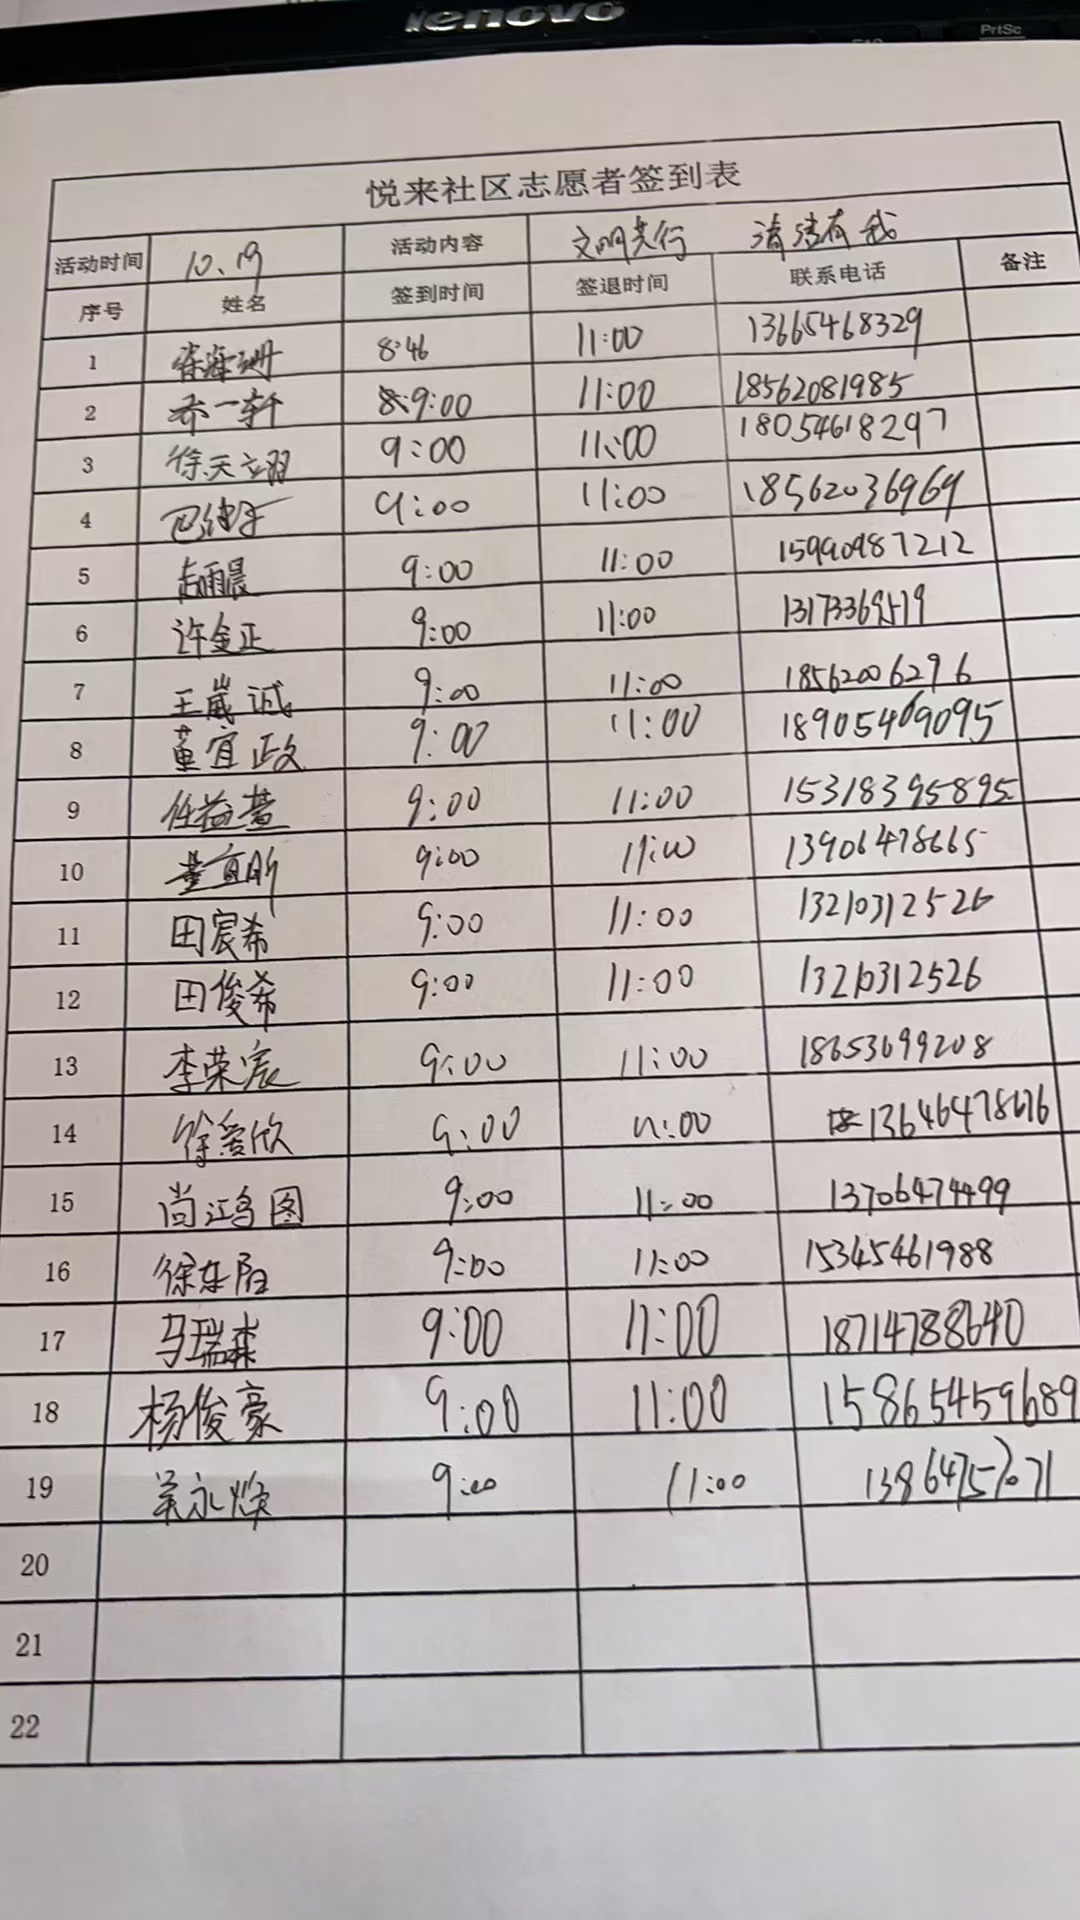 lenovo
PrtSc
悦来社区志愿者签到表
活动时间 10.19 活动内容 文明共行 清洁有我
序号 姓名 签到时间 签退时间 联系电话 备注
1 徐海珊 8:46 11:00 13665468329
2 乔一轩 9:00 11:00 18562081985
3 徐天立羽 9:00 11:00 18054618297
4 9:00 11:00 18562036969
5 赵雨晨 9:00 11:00 15990987212
6 许金正 9:00 11:00 13173369519
7 王崴诚 9:00 11:00 18562006296
8 董宜政 9:00 11:00 18905469095
9 任益萱 9:00 11:00 15318395895
10 董宜昕 9:00 11:00 13906478665
11 田宸希 9:00 11:00 13210312526
12 田俊希 9:00 11:00 13210312526
13 李荣宸 9:00 11:00 18653699208
14 徐爱欣 9:00 11:00 13646478676
15 尚鸿图 9:00 11:00 13706474499
16 徐东阳 9:00 11:00 15345461988
17 马瑞森 9:00 11:00 18714788640
18 杨俊豪 9:00 11:00 15865459689
19 吴永焕 9:00 11:00 13864757071
20
21
22